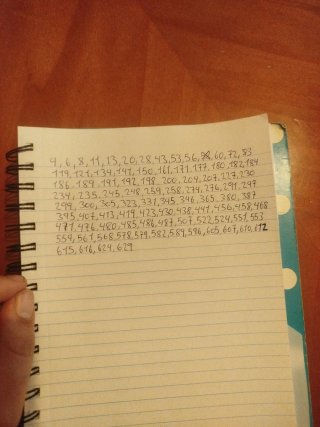 4, 6, 8, 11, 13, 20, 28, 43, 53, 56, 60, 72, 83
119, 127, 134, 141, 150, 161, 171, 177, 180, 182, 184
186, 189, 191, 192, 198, 200, 204, 207, 227, 230
234, 235, 245, 248, 254, 258, 274, 276, 291, 297
299, 300, 305, 323, 331, 345, 346, 365, 380, 387
395, 407, 413, 419, 423, 430, 438, 441, 456, 458, 468
471, 476, 480, 485, 486, 487, 507, 522, 524, 551, 553
559, 561, 568, 578, 579, 582, 584, 596, 605, 607, 610, 612
615, 616, 624, 629